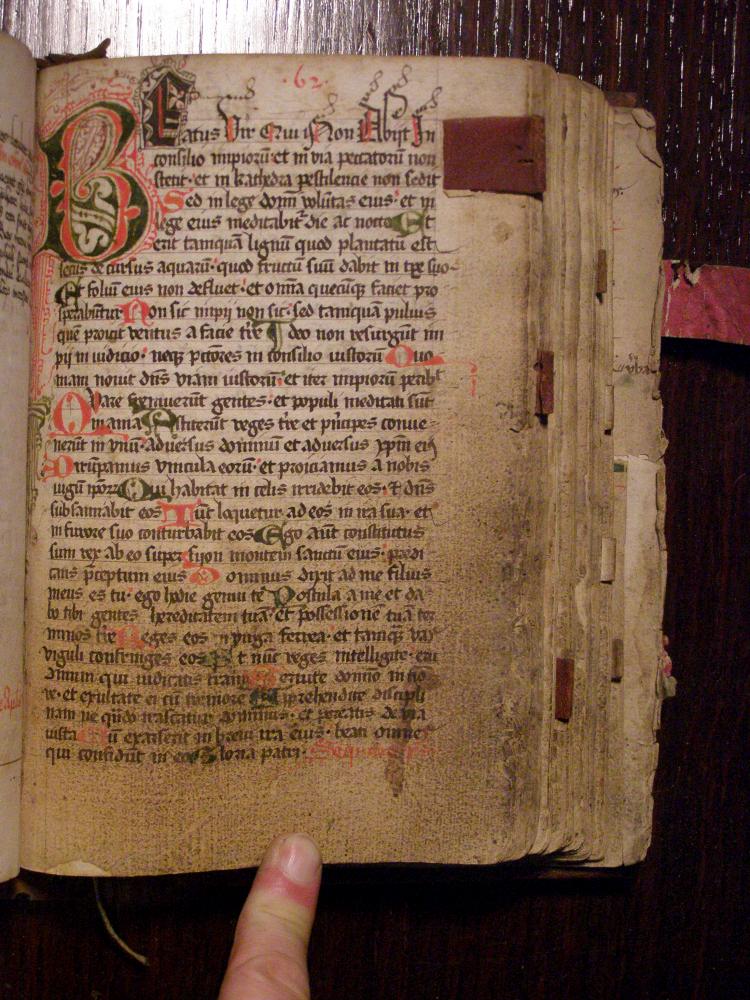 .62.
BEatus Vir Qui Non Abijt In
consilio impioru͂ et in via peccatoru͂ non
stetit et in kathedra pestilencie non sedit
Sed in lege domi͂ volu͂tas eius et in
lege eius meditabit̉ die ac nocte Et
erit tamqua͂ lignu͂ quod plantatu͂ est
secus decursus aquaru͂ quod fructu͂ suu͂ dabit in tp͂e suo
Et foliu͂ eius non defluet et om͂ia quecu͂q̓ faciet pro
sperabu͂tur Non sic impij non sic sed tamqua͂ puluis
que͂ proicit ventus a facie tr͂e Ideo non resurgu͂t im
pij in iudicio neq̓ pc͂tores in consilio iustoru͂ Quo
niam nouit dn͂s viam iustoru͂ et iter impioru͂ peribt
Quare fremueru͂t gentes et populi meditati su͂t
inania Astiteru͂t reges tr͂e et pri͂cipes conue
neru͂t in vnu͂ aduersus dominu͂ et aduersus xpm͂ ei͂
Diru͂pamus vincula eoru͂ et proiciamus a nobis
iugu͂ ipor͂ Qui habitat in celis irridebit eos et dn͂s
subsannabit eos Tu͂c loquetur ad eos in ira sua et
in furore suo co͂turbabit eos Ego aut͂ constitutus
sum rex ab eo super syon montem sanctu͂ eius predi
cans p͂ceptum eius Dominus dixit ad me filius
meus es tu ego hodie genui te͂ Postula a me et da
bo tibi gentes hereditatem tua͂ et possessione͂ tua͂ ter
minos tr͂e Reges eos in virga ferrea et tamq̓ vas
figuli confringes eos Et nu͂c reges intelligite eru
dimini qui iudicatis terram Seruite domino in tio
re et exultate ei cu͂ tremore Apprehendite discipli
nam ne qu͂do irascatur dominus et pereatis de via
iusta Cu͂ exarserit in breui ira eius beati omnes
qui confidu͂t in eo Gloria patri